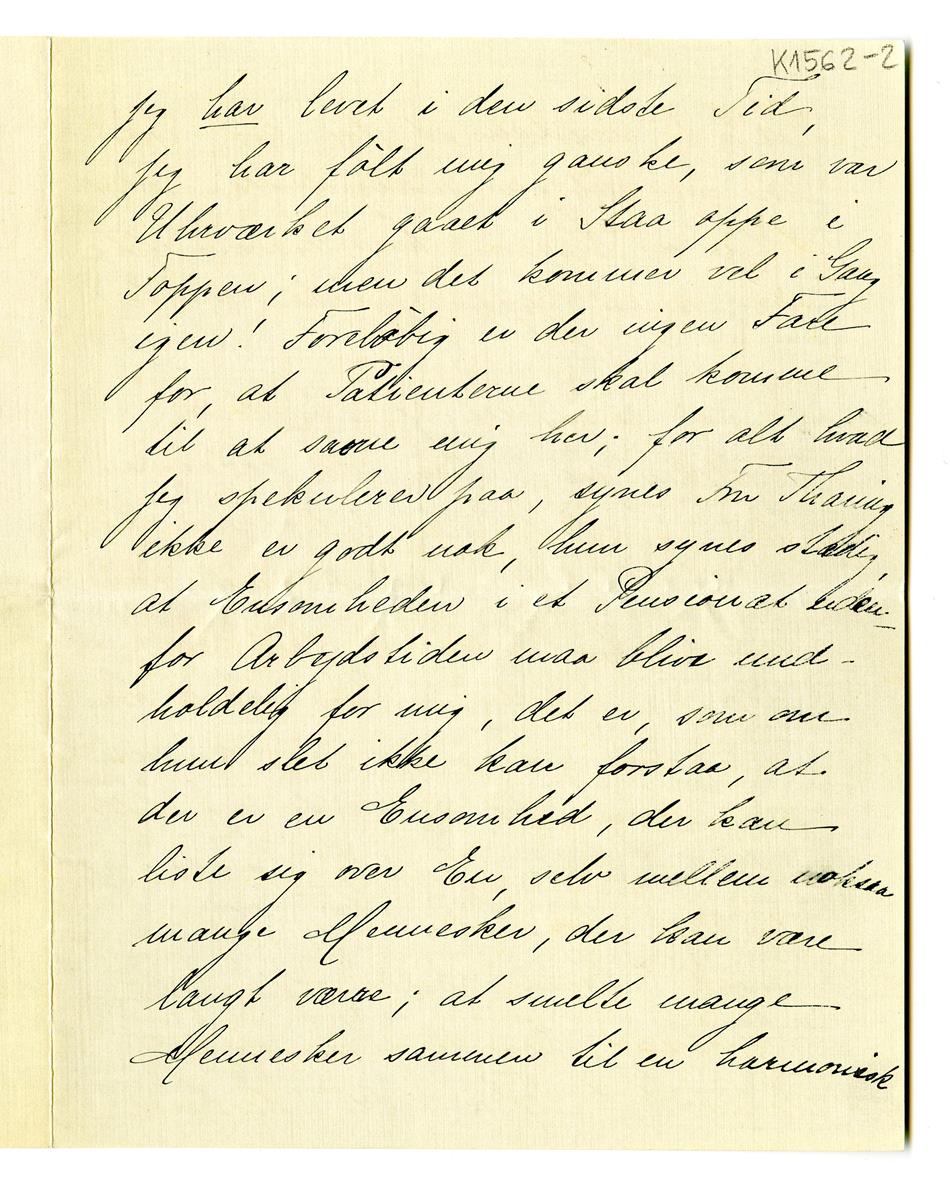 K1562-2
jeg har levet i den sidste Tid,
jeg har følt mig ganske, som var
Uhrværket gaaet i Staa oppe i
Toppen; men det kommer vel i Gang
igen! Foreløbig er der ingen Fare
for, at Patienterne skal komme
til at savne mig her; for alt hvad
jeg spekulerer paa, synes Fru Thaning
ikke er godt nok, hun synes stadig,
at Ensomheden i et Pensionat uden-
for Arbejdstiden maa blive und-
holdelig for mig, det er, som om
hun slet ikke kan forstaa, at
der er en Ensomhed, der kan
liste sig over En, selv mellem noksaa
mange Mennesker, der kan være
langt værre; at smelte mange
Mennesker sammen til en harmonisk